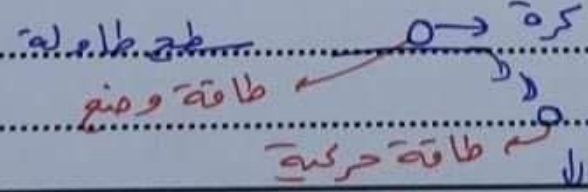 كرة
سطح طاولة
طاقة وضع
طاقة حركية